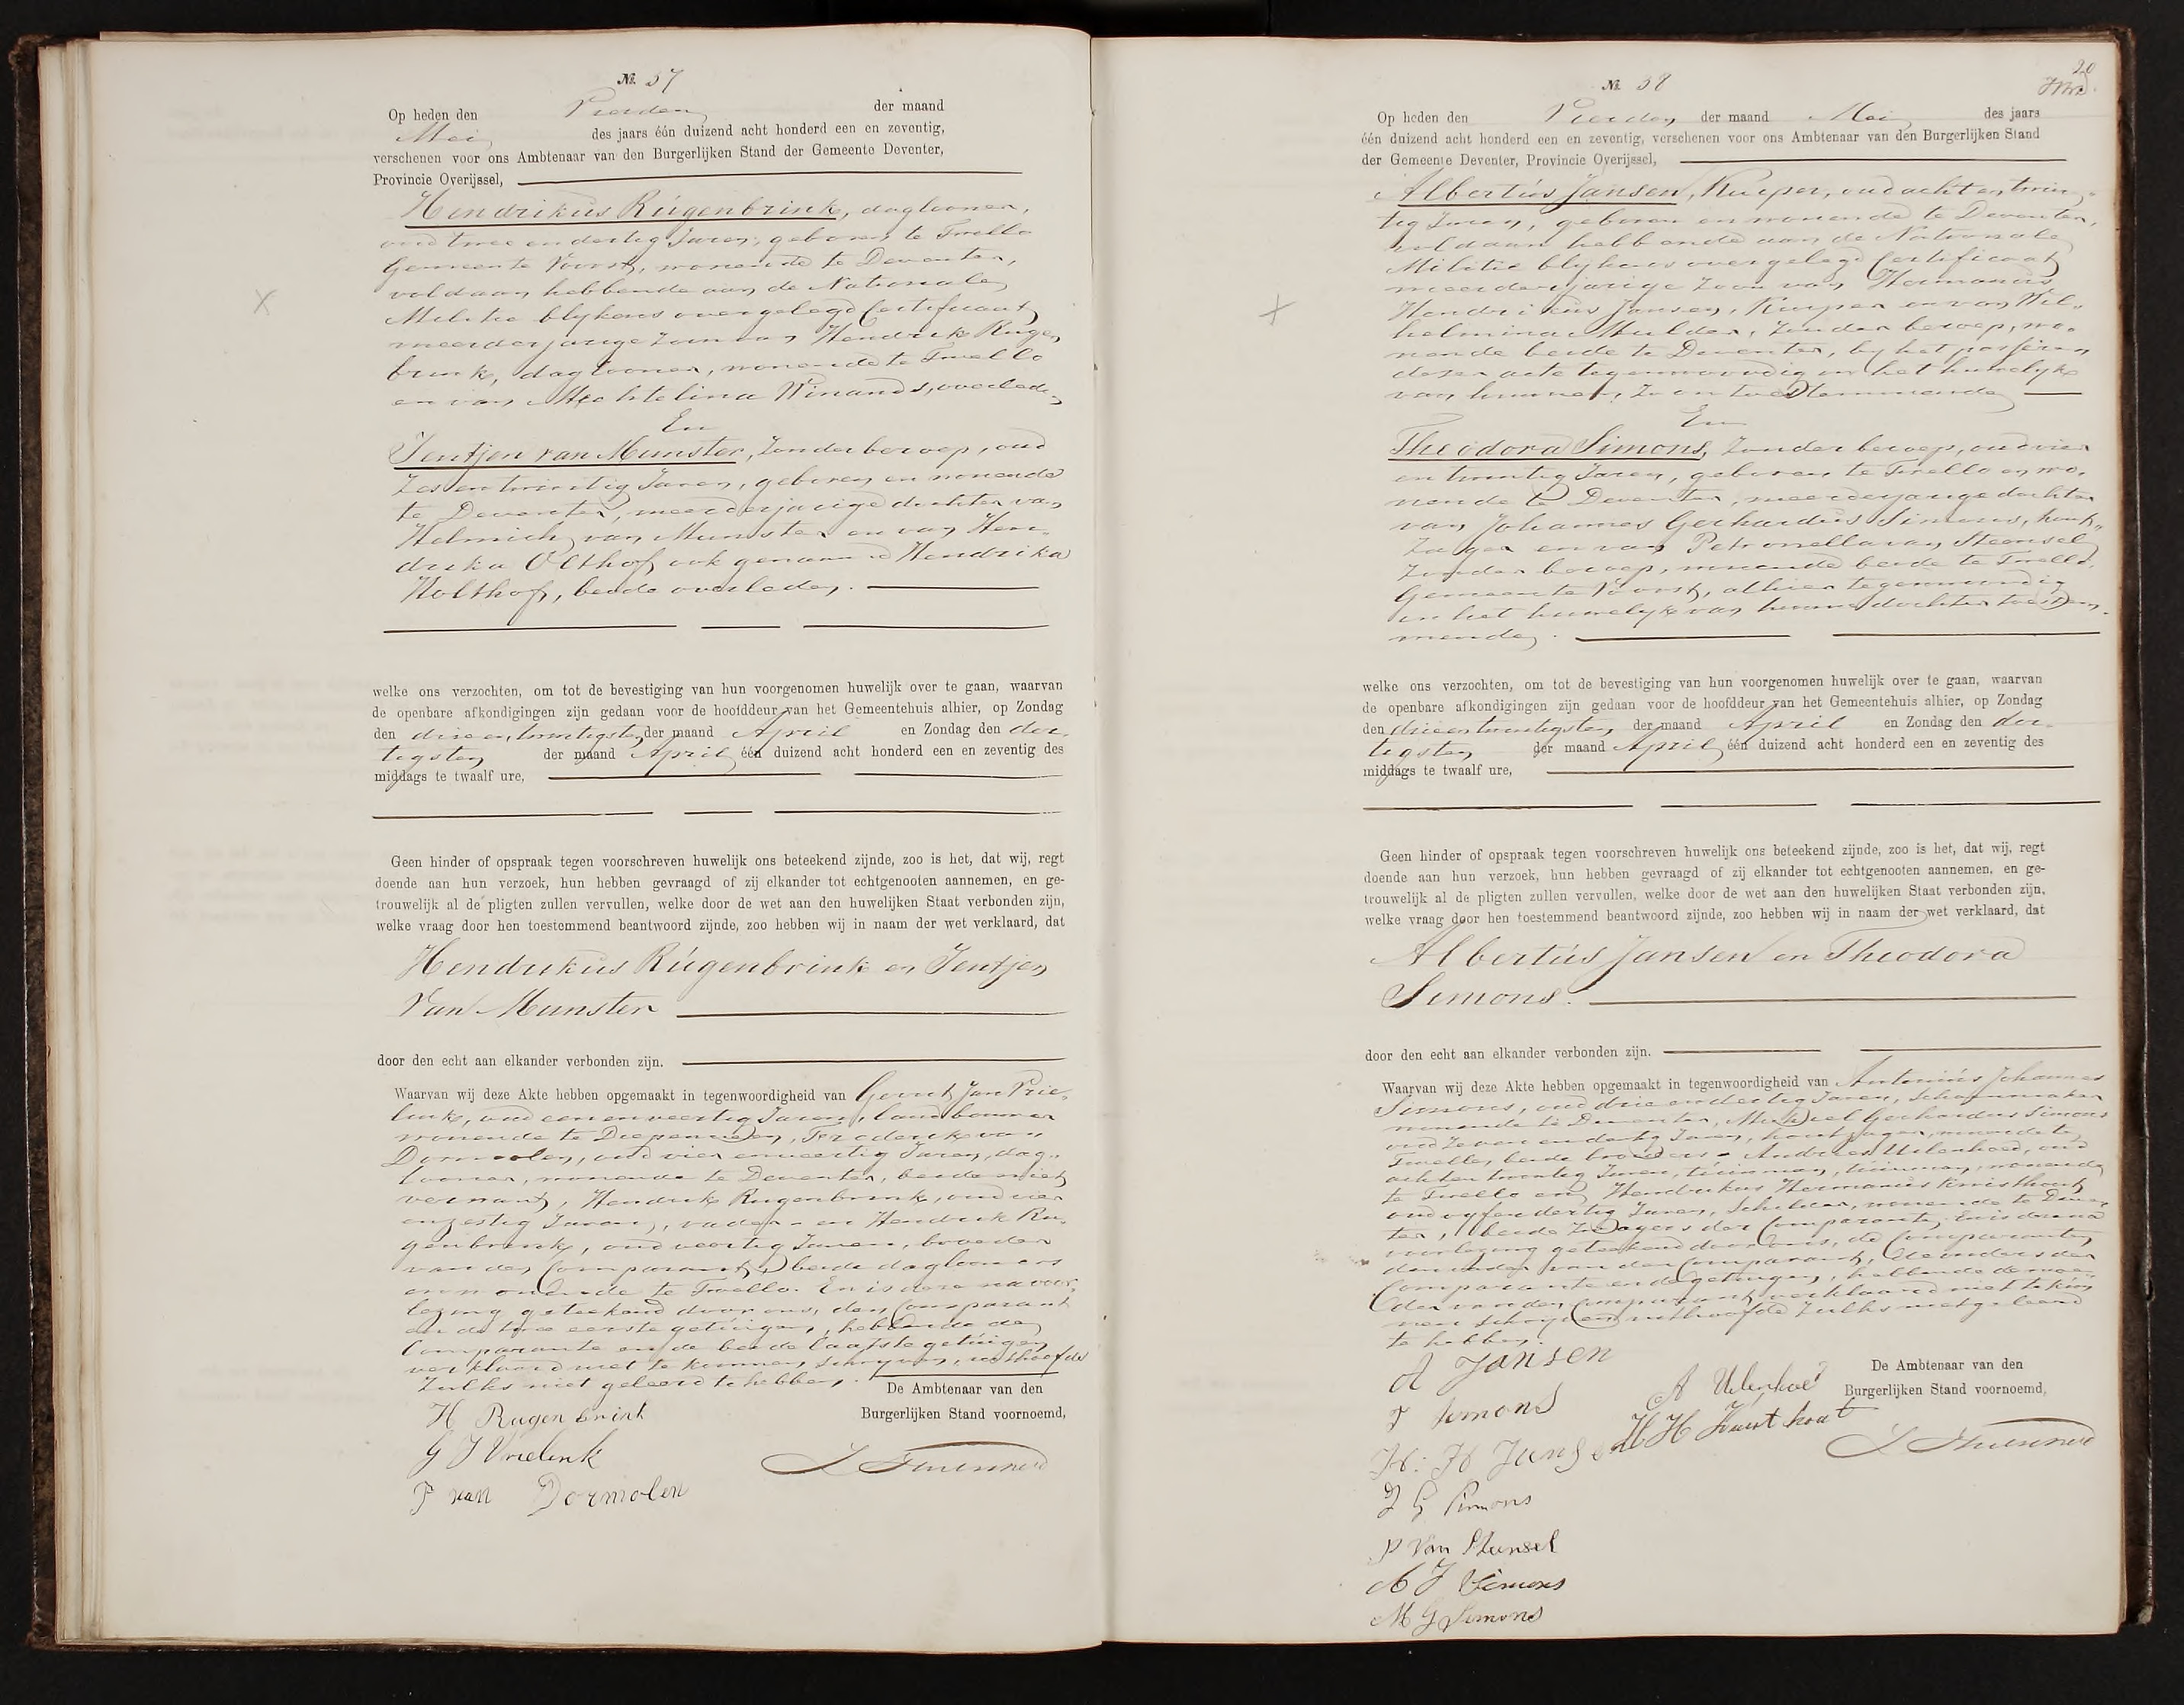 № 37
Op heden den Vierden der maand
Mei des jaars één duizend acht honderd een en zeventig,
verschenen voor ons Ambtenaar van den Burgerlijken Stand der Gemeente Deventer,
Provincie Overijssel,
Hendrikus Rúgenbrink, daglooner,
oud twee en dertig Jaren, geboren te Twello
Gemeente Voorst, wonende te Deventer,
voldaan hebbende aan de Nationale
Militie blijkens overgelegd Certificaat
meerderjarige Zoon van Hendrik Rugen
brink, daglooner, wonende te Twello
en van Mechtelina Winands, overleden
En
Jentjen van Munster, Zonder beroep, oud
Zes en twintig Jaren, geboren en wonende
te Deventer, meerderjarige dochter van
Helmich van Munster en van Hen-
drika Olthof ook genaamd Hendrika
Holthof, beide overleden.
welke ons verzochten, om tot de bevestiging van hun voorgenomen huwelijk over te gaan, waarvan
de openbare afkondigingen zijn gedaan voor de hoofddeur van het Gemeentehuis alhier, op Zondag
den drie en twintigsten der maand April en Zondag den der-
tigsten der maand April één duizend acht honderd een en zeventig des
middags te twaalf ure,
Geen hinder of opspraak tegen voorschreven huwelijk ons beteekend zijnde, zoo is het, dat wij, regt
doende aan hun verzoek, hun hebben gevraagd of zij elkander tot echtgenooten aannemen, en ge-
trouwelijk al de pligten zullen vervullen, welke door de wet aan den huwelijken Staat verbonden zijn,
welke vraag door hen toestemmend beantwoord zijnde, zoo hebben wij in naam der wet verklaard, dat
Hendrikus Rúgenbrink en Jentjen
Van Munster
door den echt aan elkander verbonden zijn.
Waarvan wij deze Akte hebben opgemaakt in tegenwoordigheid van Gerrit Jan Vrie-
link, oud een en veertig Jaren, landbouwer
wonende te Diepenveen, Frederik van
Dormolen, oud vier en veertig Jaren, dag-
looner, wonende te Deventer, beide niet
verwant, Hendrik Rugenbrink, oud vier
en zestig Jaren, vader - en Hendrik Ru-
genbrink, oud veertig Jaren, broeder
van den Comparant, beide daglooners
en wonende te Twello. En is deze na voor-
lezing geteekend door ons, den Comparant
en de twee eerste getuigen, hebbende de
Comparante en de beide laatste getuigen
verklaard niet te kunnen schrijven, uithoofde
Zulks niet geleerd te hebben.
De Ambtenaar van den
Burgerlijken Stand voornoemd,
H Rugenbrink
G J Vrielink
F van Dormolen
20
№ 38
Op heden den Vierden der maand Mei des jaars
één duizend acht honderd een en zeventig, verschenen voor ons Ambtenaar van den Burgerlijken Stand
der Gemeente Deventer, Provincie Overijssel,
Albertús Jansen, Kuiper, oud acht en twin-
tig Jaren, geboren en wonende te Deventer,
voldaan hebbende aan de Nationale
Militie blijkens overgelegd Certificaat
meerderjarige Zoon van Hermanus
Hendrikus Jansen, Kuiper en van Wil-
helmina Mulder, Zonder beroep, wo-
nende beide te Deventer, bij het passeren
dezer acte tegenwoordig en het huwelijk
van hunnen Zoon toestemmende
En
Theodora Simons, Zonder beroep, oud vier
en twintig Jaren, geboren te Twello en wo-
nende te Deventer, meerderjarige dochter
van Johannes Gerhardus Simons, hout-
Zager en van Petronella van Steensel
Zonder beroep, wonende beide te Twello,
Gemeente Voorst, alhier tegenwoordig
en het huwelijk van hunne dochter toestem-
mende.
welke ons verzochten, om tot de bevestiging van hun voorgenomen huwelijk over te gaan, waarvan
de openbare afkondigingen zijn gedaan voor de hoofddeur van het Gemeentehuis alhier, op Zondag
den drie en twintigsten der maand April en Zondag den der-
tigsten der maand April één duizend acht honderd een en zeventig des
middags te twaalf ure,
Geen hinder of opspraak tegen voorschreven huwelijk ons beteekend zijnde, zoo is het, dat wij, regt
doende aan hun verzoek, hun hebben gevraagd of zij elkander tot echtgenooten aannemen, en ge-
trouwelijk al de pligten zullen vervullen, welke door de wet aan den huwelijken Staat verbonden zijn,
welke vraag door hen toestemmend beantwoord zijnde, zoo hebben wij in naam der wet verklaard, dat
Albertús Jansen en Theodora
Simons.
door den echt aan elkander verbonden zijn.
Waarvan wij deze Akte hebben opgemaakt in tegenwoordigheid van Antonius Johannes
Simons, oud drie en dertig Jaren, Schoenmaker
wonende te Deventer, Michiel Gerhardus Simons
oud Zeven en dertig Jaren, houtzager, wonende te
Twello, beide broeders - Andries Uilenhoed, oud
acht en twintig Jaren, tuinman, wonende
te Twello en Hendrikus Hermanus
oud vijf en dertig Jaren, Schilder, wonende te Deven-
ter, beide Zwagers der Comparante. En is deze na
voorlezing geteekend door ons, de Comparanten
den vader van den Comparant, de ouders der
Comparante en de getuigen, hebbende de moe-
der van den Comparant verklaard niet te kun-
nen schrijven uithoofde Zulks niet geleerd
te hebben.
A Jansen
T Simons
H: H Jansen
J G Simons
P Van Steensel
A J Simons
M G Simons
De Ambtenaar van den
Burgerlijken Stand voornoemd,